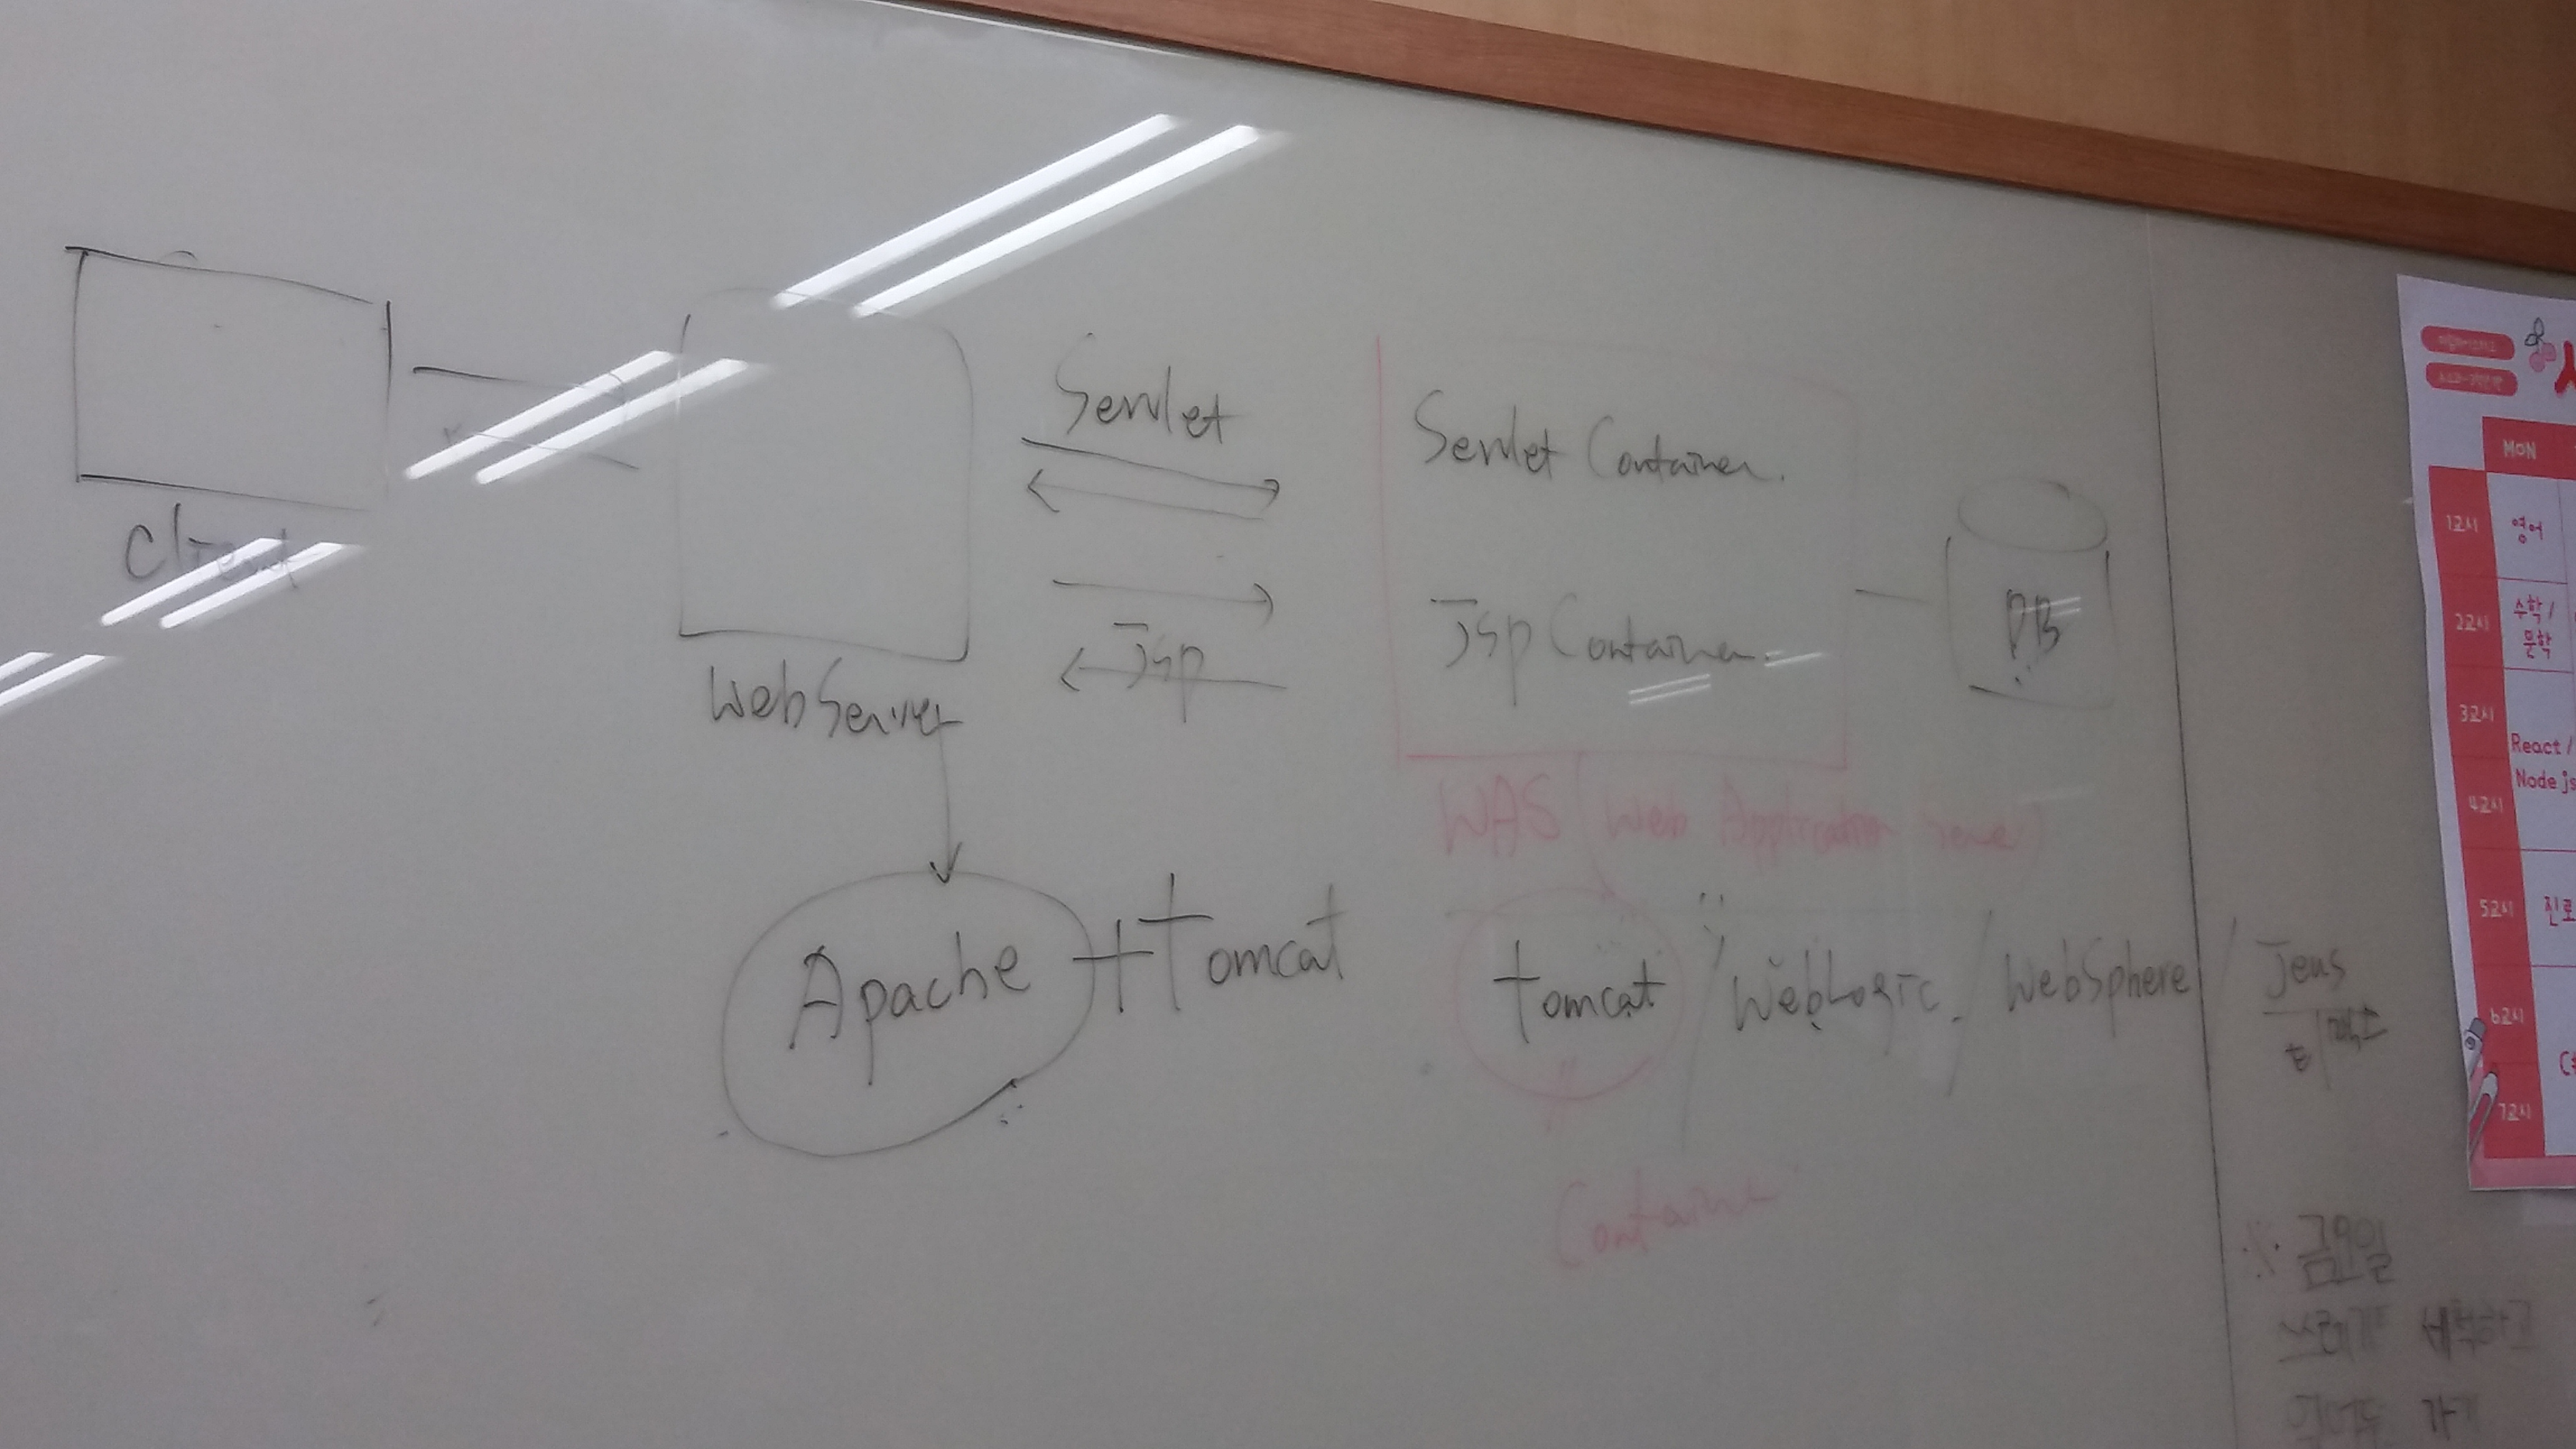 Client
WebServer
Servlet
Jsp
Servlet Container.
Jsp Container.
DB
WAS (Web Application Server)
Apache + Tomcat
tomcat / WebLogic / WebSphere / Jeus
Container
MON
1교시 영어
2교시 수학 /
문학
3교시
React /
Node js
4교시
5교시 진로
6교시
7교시
※ 금요일